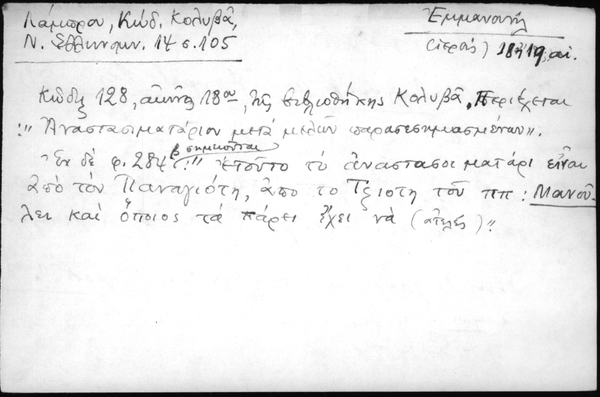 Λάμπρου, Κώδ. Κολυβᾶ,
Ν. Ἑλληνομν. 14 σ. 105
Ἐμμανουὴλ
(ἱερεὺς) 18-19 αἰ.
Κῶδιξ 128, αἰῶνος 18ου, τῆς βιβλιοθήκης Κολυβᾶ, Περιέχεται
:" Ἀναστασιματάριον μετὰ μελῶν παρασεσημασμένων».
Ἐν δὲ φ. 284β σημειοῦται :" Ἐτοῦτο τὸ ἀναστασοιματάρι εἶναι
ἀπὸ τὸν Παναγιότη, ἀπο το Τζιοτη τοῦ ππ : Μανού-
λει καὶ ὅποιος τὰ πάρει ἔχει νὰ (ἀτελές)"